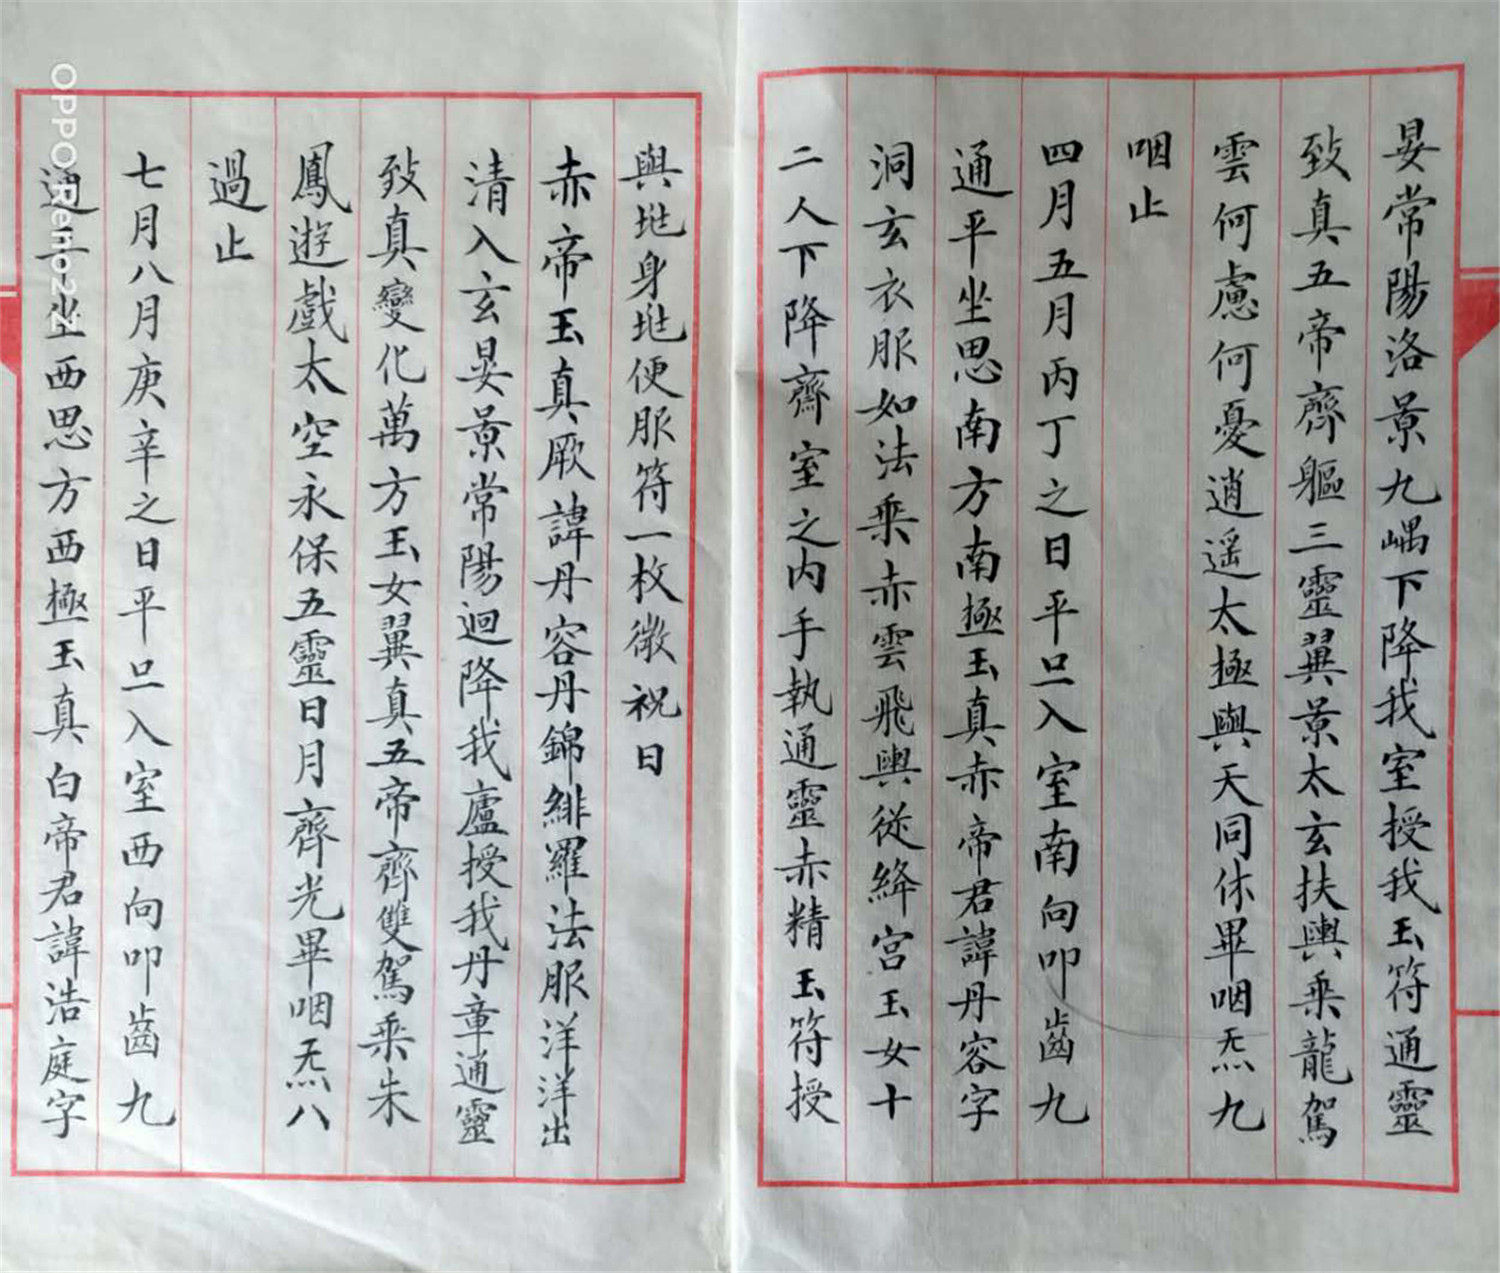 晏常陽洛景九嵎下降我室授我玉符通靈
致真五帝齊軀三靈翼景太玄扶輿乘龍駕
雲何慮何憂逍遥太極與天同休畢咽炁九
咽止
四月五月丙丁之日平旦入室南向叩齒九
通平坐思南方南極玉真赤帝君諱丹容字
洞玄衣服如法乘赤雲飛輿從絳宮玉女十
二人下降齋室之内手執通靈赤精玉符授
與兆身兆便服符一枚微祝曰
赤帝玉真厥諱丹容丹錦緋羅法服洋洋出
清入玄晏景常陽迴降我廬授我丹章通靈
致真變化萬方玉女翼真五帝齊雙駕乘朱
鳳遊戲太空永保五靈日月齊光畢咽炁八
過止
七月八月庚辛之日平旦入室西向叩齒九
通 坐西思方西極玉真白帝君諱浩庭字
OPPO Reno2 Z